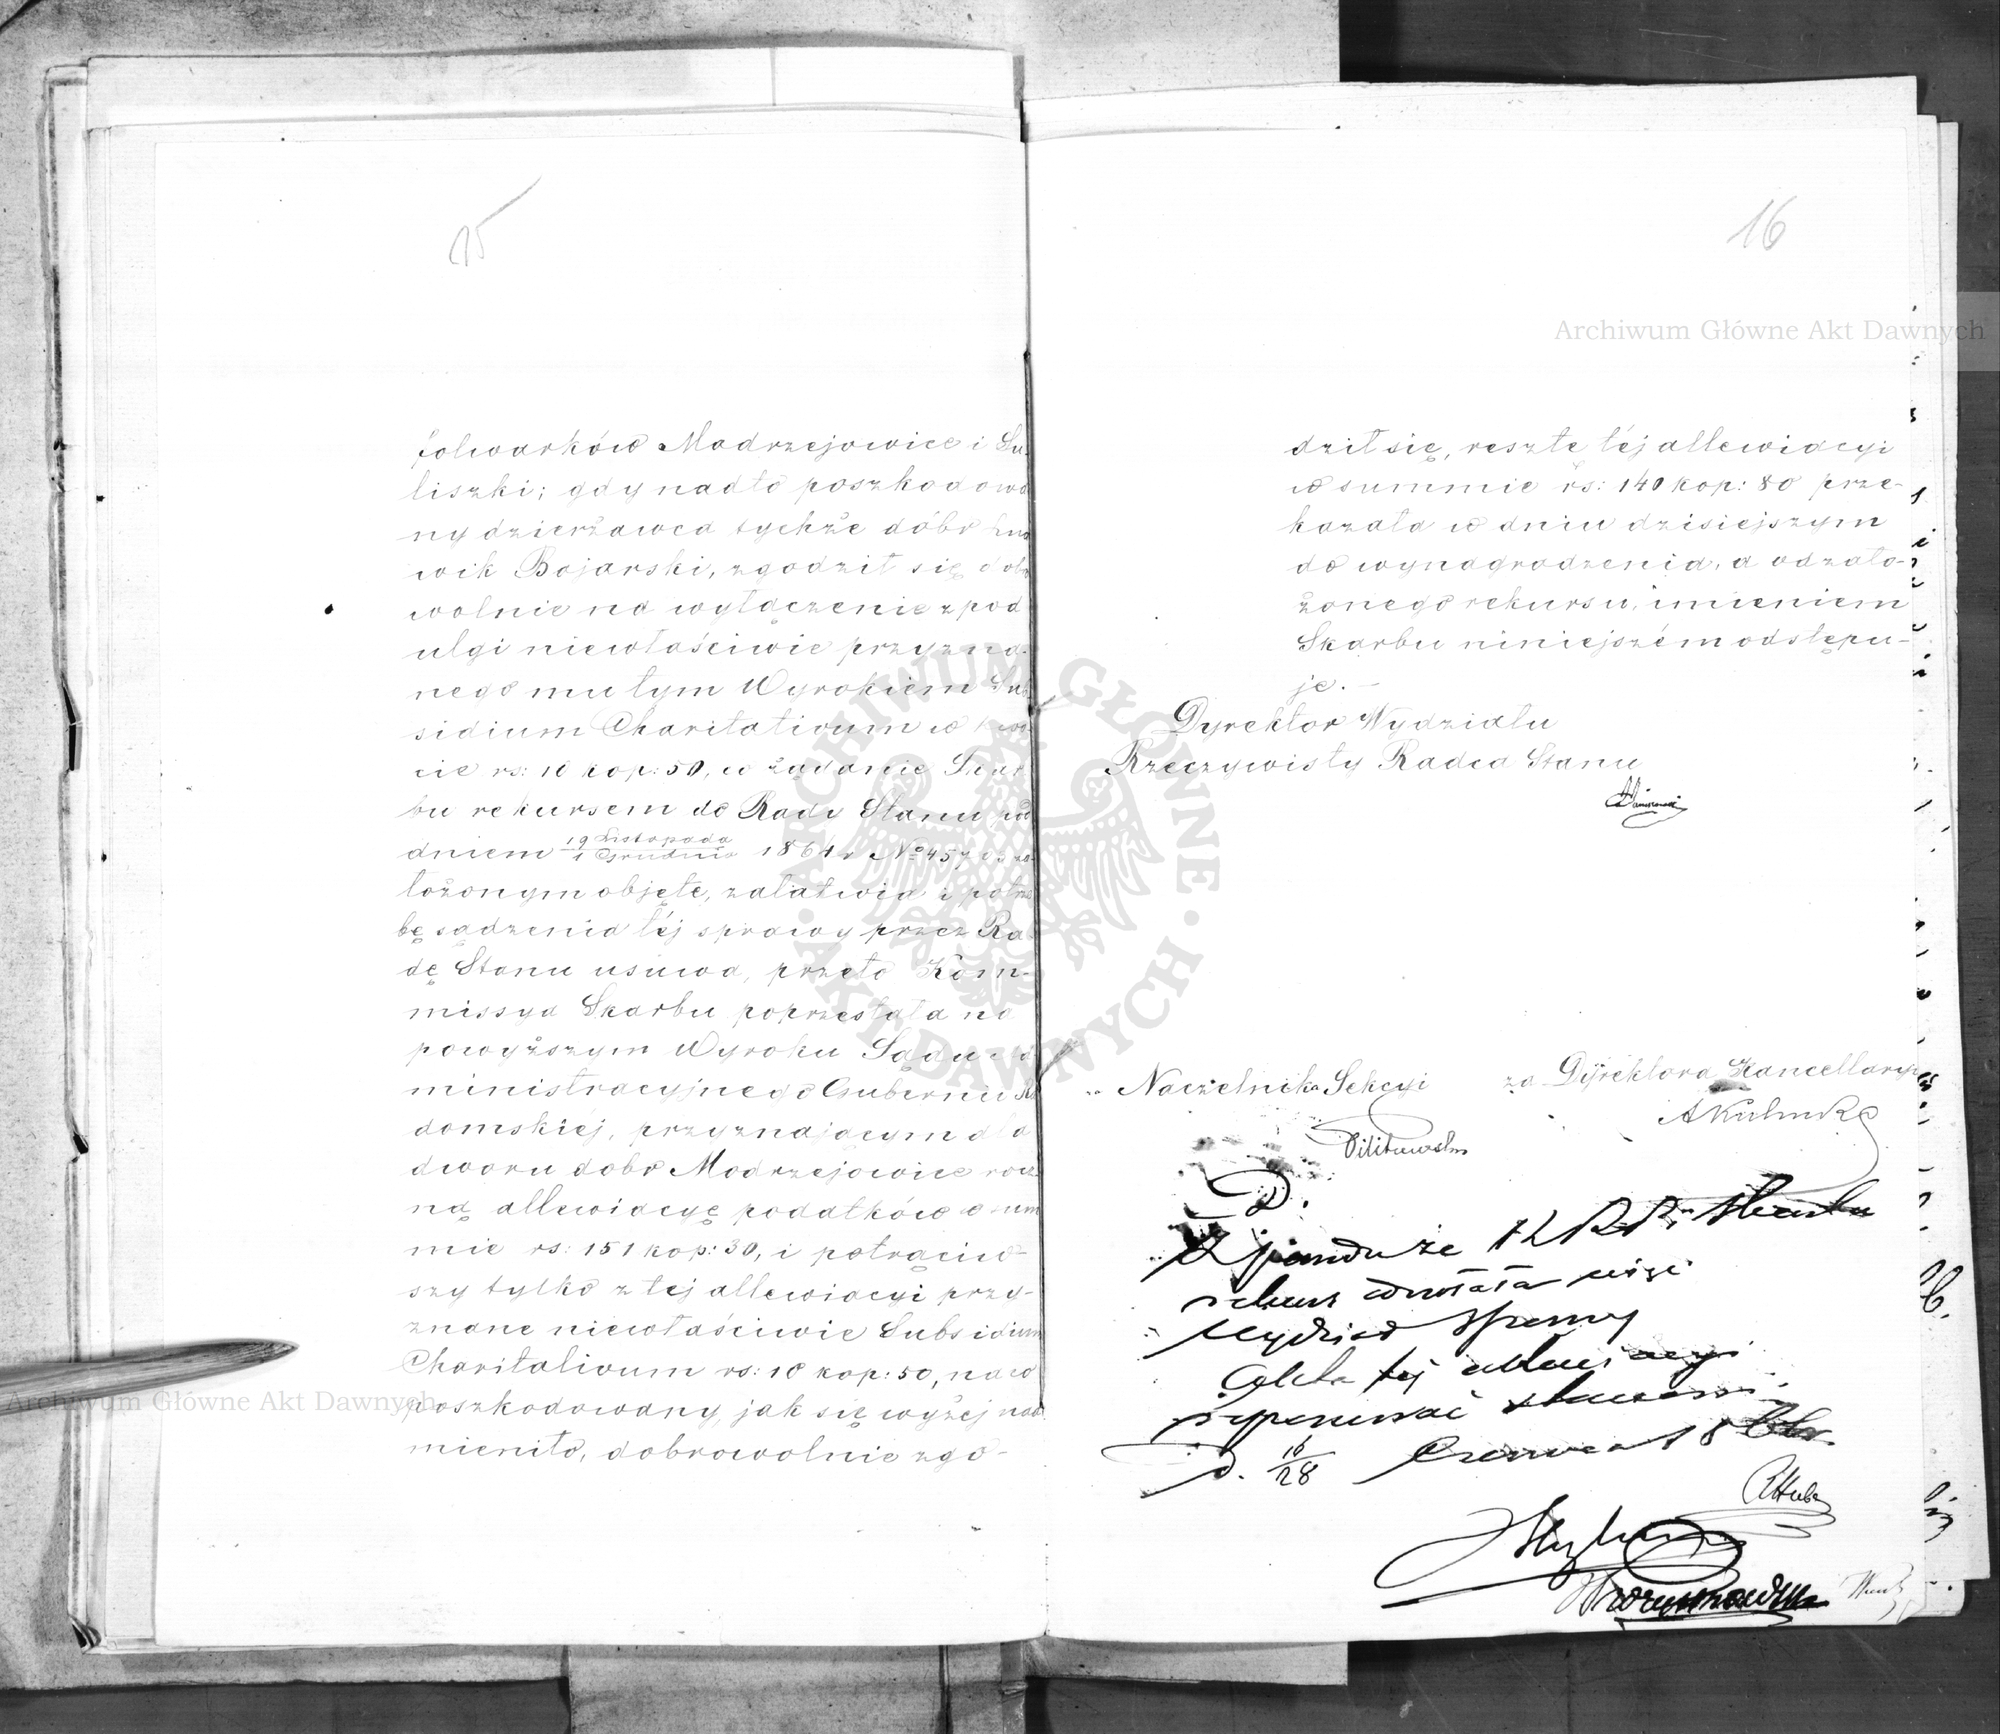 15
folwarków Modrzejowice i Su-
liszki; gdy nadto poszkodowa
ny dzierżawca tychże dóbr Lud
wik Bojarski, zgodził się dobro
wolnie na wyłączenie z pod
ulgi niewłaściwie przyzna-
nego mu tym Wyrokiem Sub-
sidium Charitativum w kwo-
cie rs: 10 kop: 50, co żądanie Skar
bu rekursem do Rady Stanu pod
dniem 19 Listopada / 1 Grudnia 1864 r № 45703 za-
łożonym objęte, załatwia i potrze
bę sądzenia téj sprawy przez Ra
dę Stanu usuwa, przeto Kom-
missya Skarbu poprzestała na
powyższym Wyroku Sądu Ad
ministracyjnego Gubernii Ra
domskiéj, przyznającym dla
dworu dóbr Modrzejowice rocz
ną allewiacyę podatków w sum
mie rs: 151 kop: 30, i potrąciw-
szy tylko z tej allewiacyi przy-
znane niewłaściwie Subsidium
Charitativum rs: 10 kop: 50, na co
poszkodowany, jak się wyżej nad
mieniło, dobrowolnie zgo-
16
dził się, resztę téj allewiacyi
w summie rs: 140 kop: 80 prze-
kazała w dniu dzisiejszym
do wynagrodzenia, a od zało-
żonego rekursu, imieniem
Skarbu niniejszém odstępu-
je.-
Dyrektor Wydziału
Rzeczywisty Radca Stanu
Naczelnika Sekcyi
za Dyrektora Kancellaryi
D.
Z powodu że K R P. i Skarbu
rekurs cofnęła więc
Wydział sprawy
Akta tej allewiacyi
reponować
d. 16/28 Czerwca 18
Archiwum Główne Akt Dawnych
Archiwum Główne Akt Dawnych
ARCHIWUM GŁÓWNE · AKT DAWNYCH ·